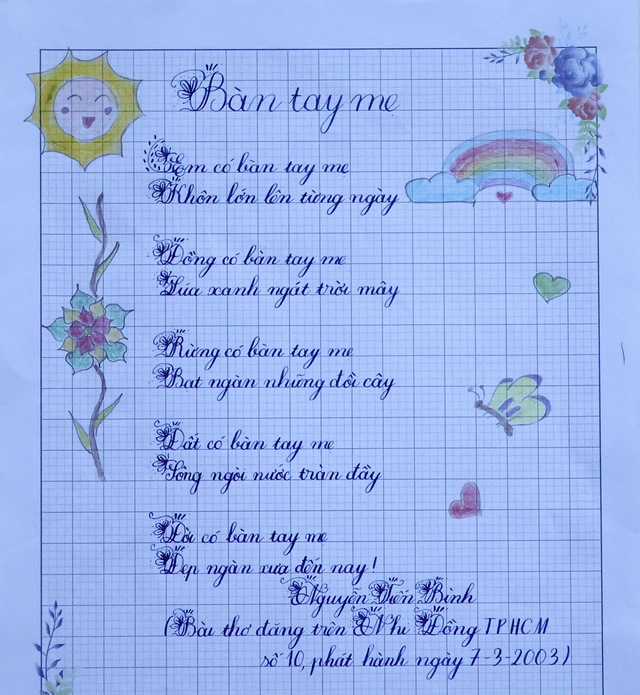 Bàn tay mẹ
Em có bàn tay mẹ
Khôn lớn lên từng ngày
Đồng có bàn tay mẹ
Lúa xanh ngát trời mây
Rừng có bàn tay mẹ
Bạt ngàn những đồi cây
Đất có bàn tay mẹ
Sông ngòi nước tràn đầy
Đời có bàn tay mẹ
Đẹp ngàn xưa đến nay!
Nguyễn Tiến Bình
(Bài thơ đăng trên Nhi Đồng TPHCM
số 10, phát hành ngày 7-3-2003)